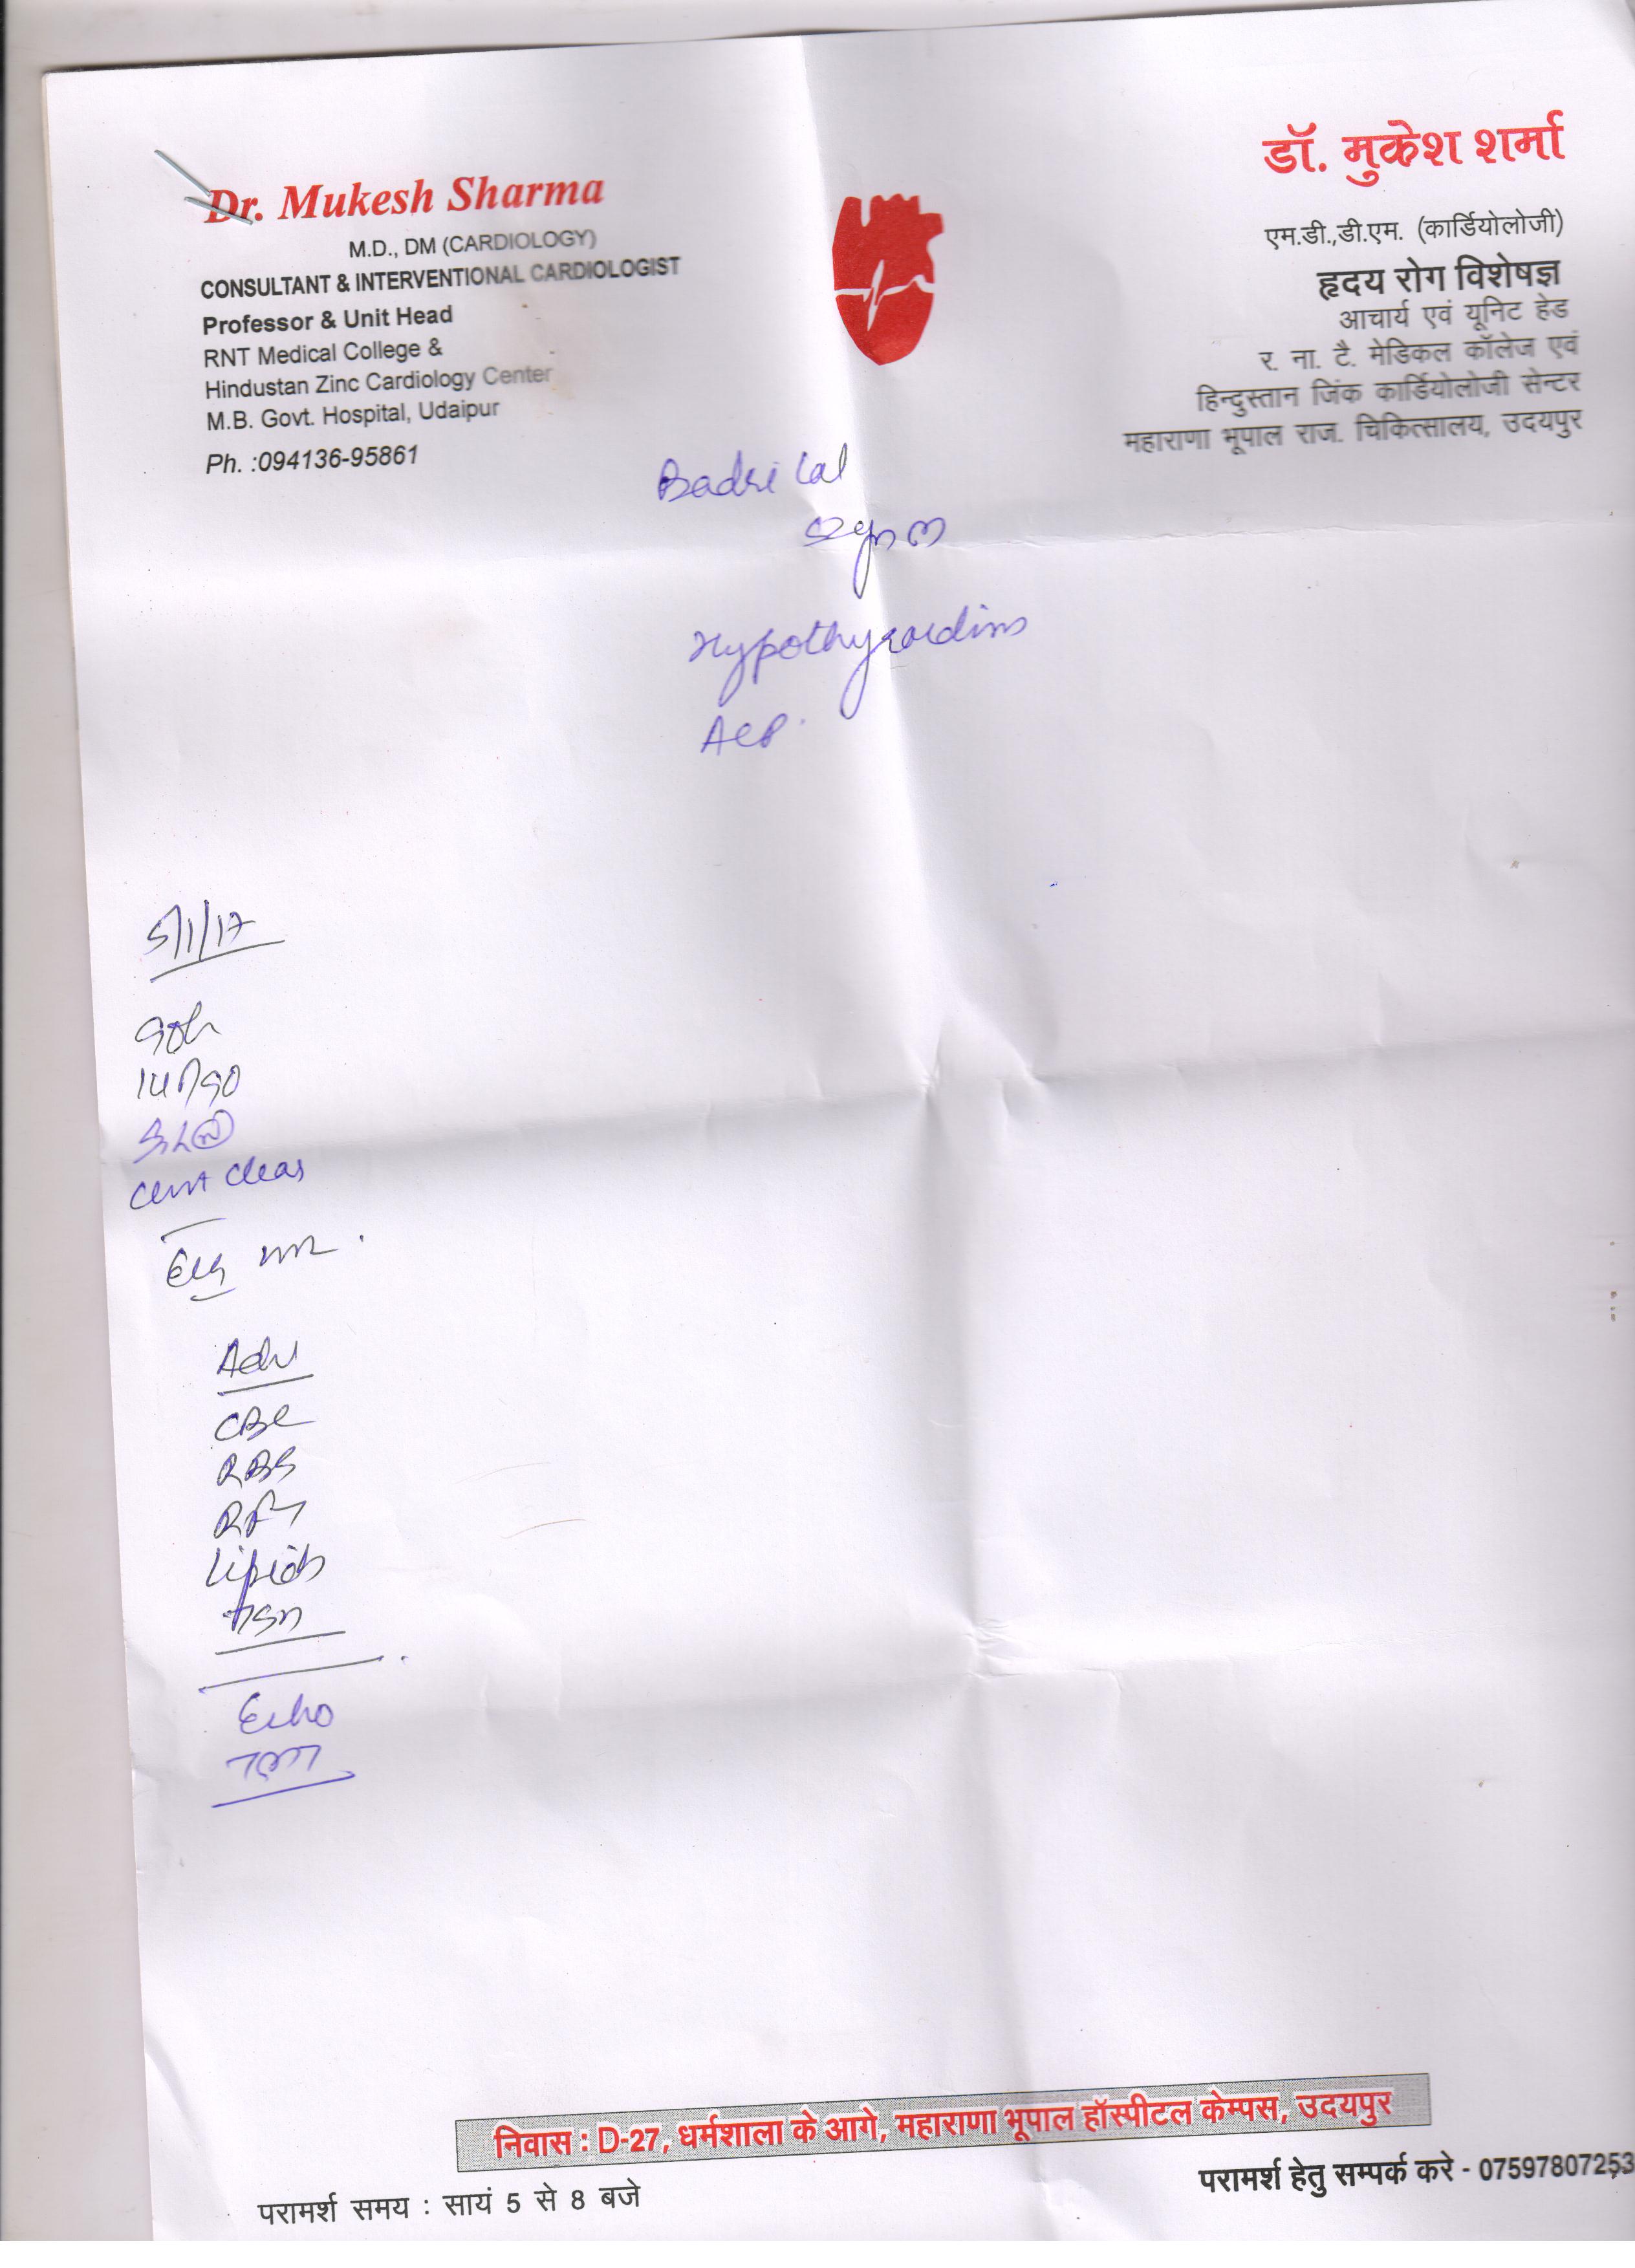 Dr. Mukesh Sharma
M.D., DM (CARDIOLOGY)
CONSULTANT & INTERVENTIONAL CARDIOLOGIST
Professor & Unit Head
RNT Medical College &
Hindustan Zinc Cardiology Center
M.B. Govt. Hospital, Udaipur
Ph. :094136-95861
डॉ. मुकेश शर्मा
एम.डी.,डी.एम. (कार्डियोलोजी)
हृदय रोग विशेषज्ञ
आचार्य एवं यूनिट हेड
र. ना. टै. मेडिकल कॉलेज एवं
हिन्दुस्तान जिंक कार्डियोलोजी सेन्टर
महाराणा भूपाल राज. चिकित्सालय, उदयपुर
Badri Lal
Hypothyroidism
5/1/17
Chest Clear
Adv
CBC
RBS
RFT
Lipids
TSH
Echo
TMT
निवास : D-27, धर्मशाला के आगे, महाराणा भूपाल हॉस्पीटल केम्पस, उदयपुर
परामर्श समय : सायं 5 से 8 बजे
परामर्श हेतु सम्पर्क करे - 07597807253